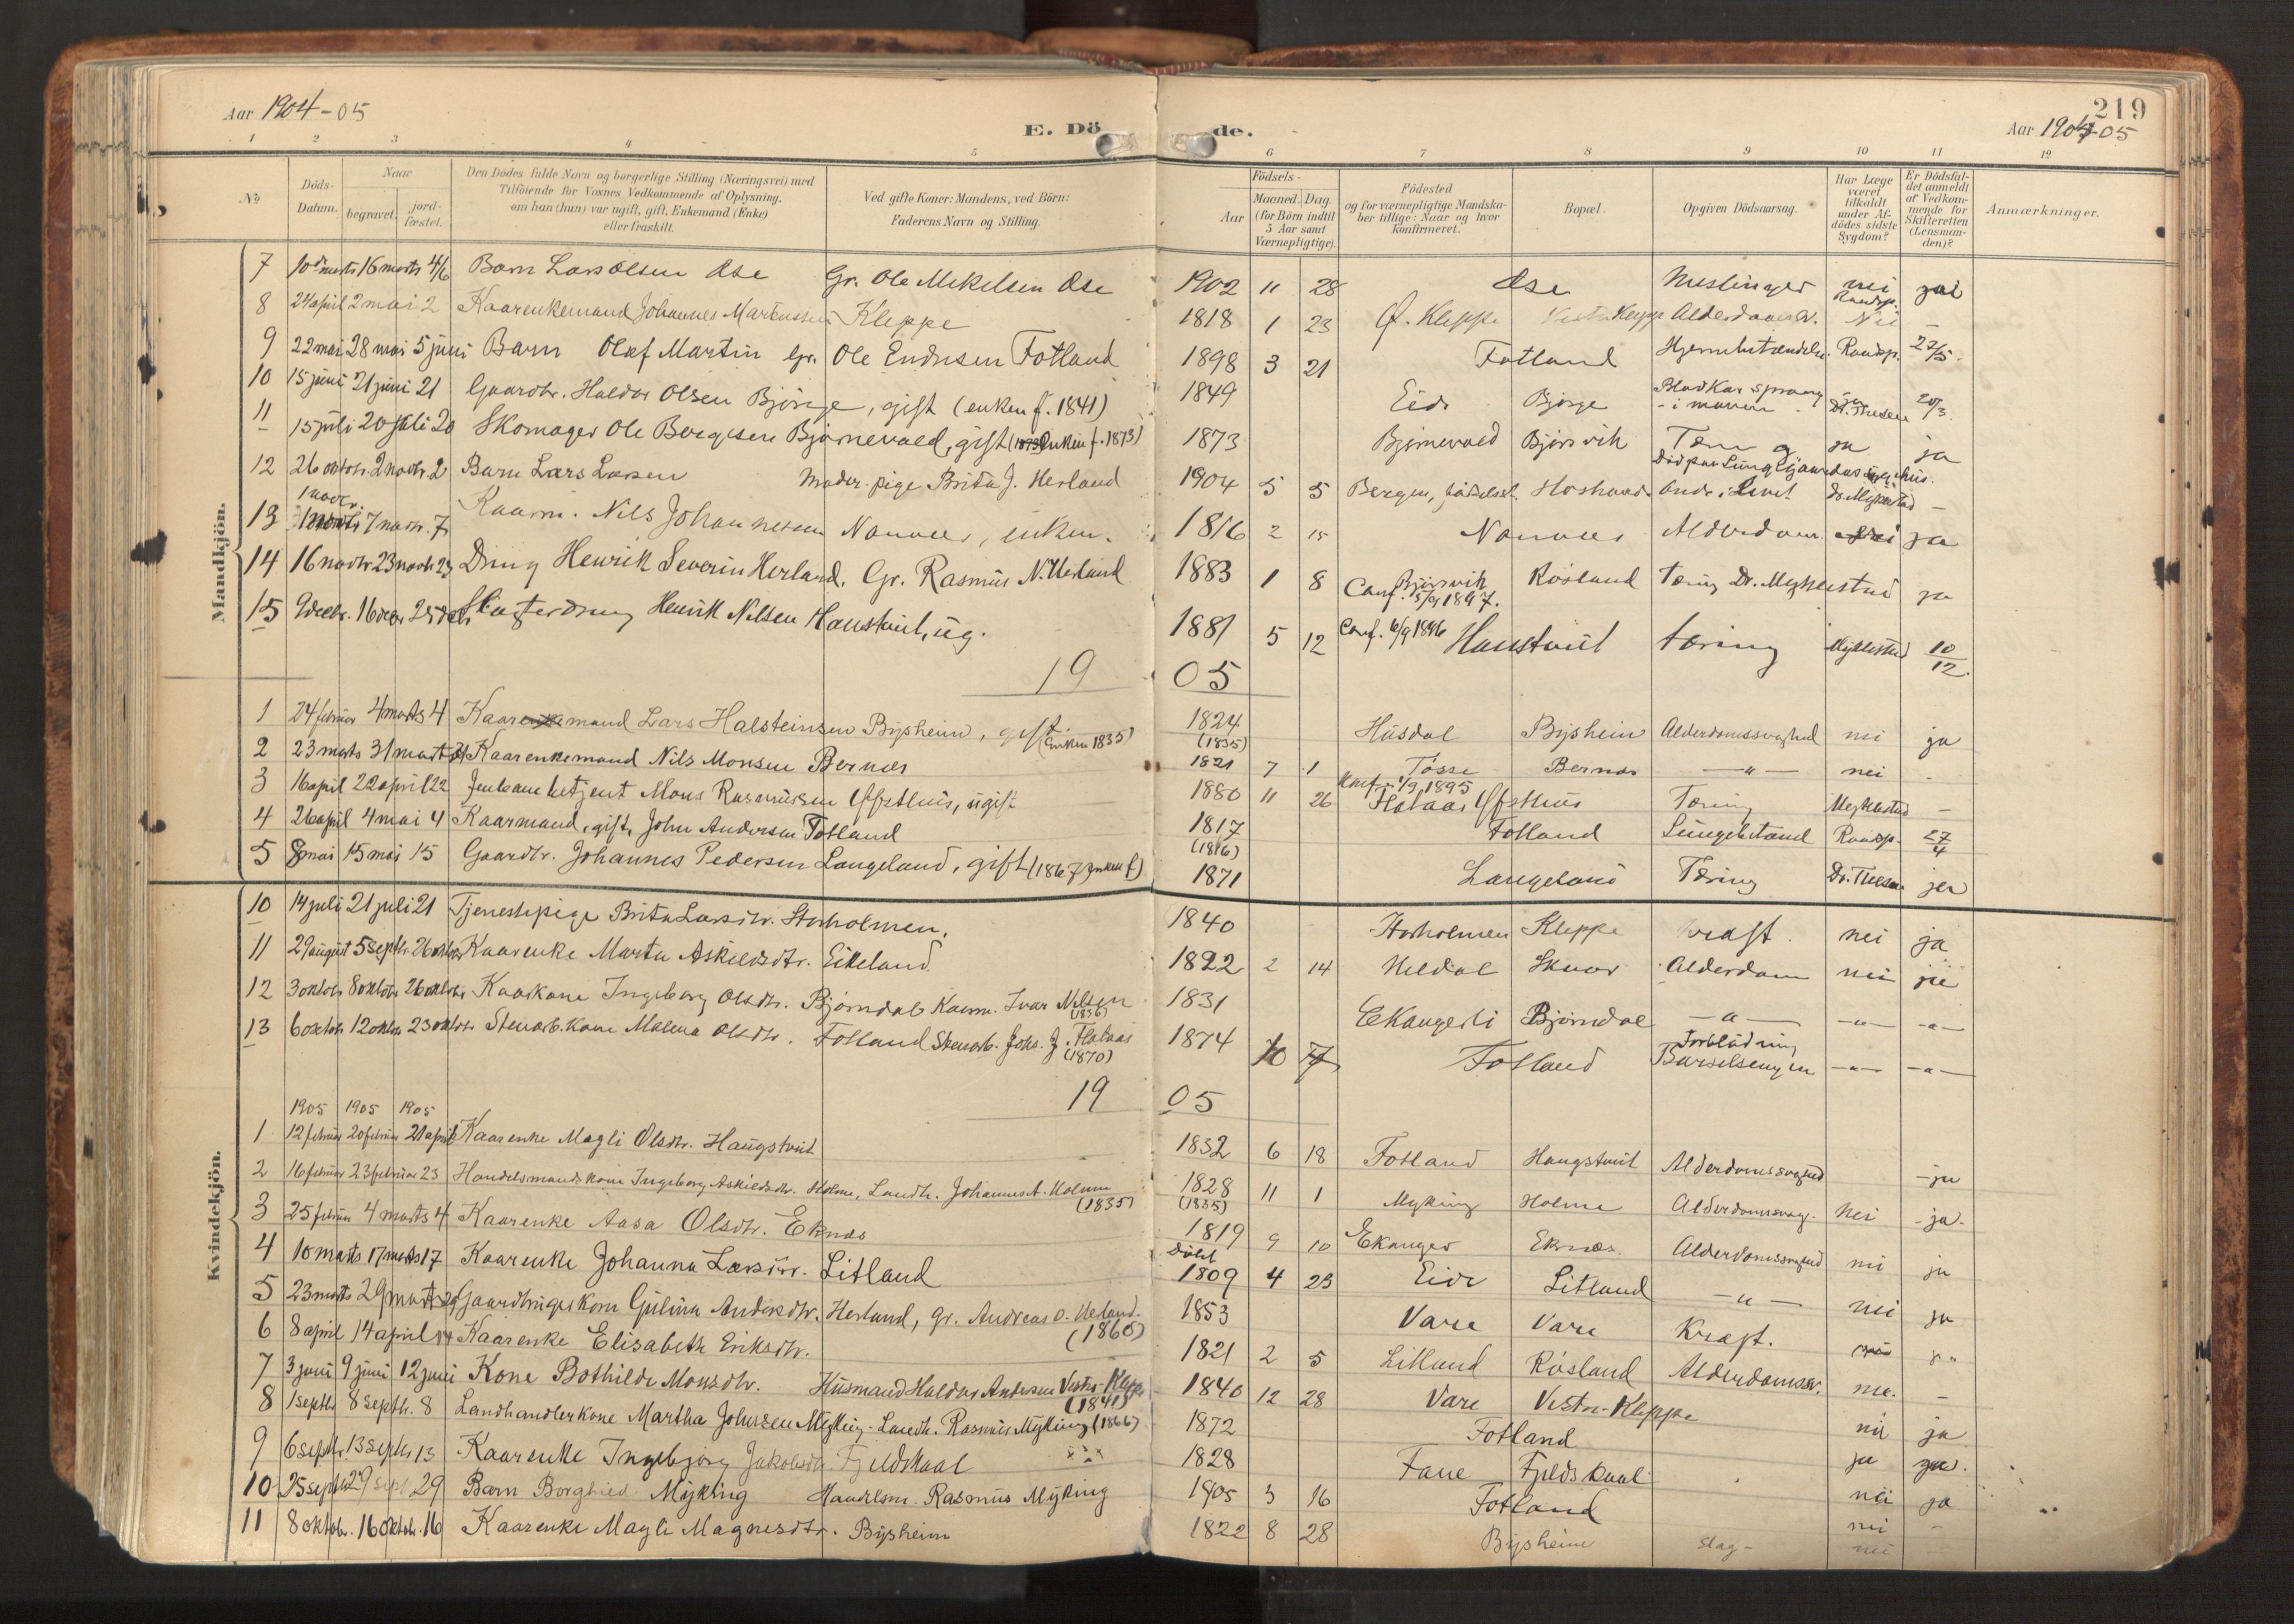 219
Aar 1904-05
E. Döde.
Aar 1904-05
1 2 3 4 5 6 7 8 9 10 11 12
No
Döds-Datum.
Naar
begravet.
jordfæstet.
Den Dödes fulde Navn og borgerlige Stilling (Næringsvei) med Tilföiende for Voxnes Vedkommende af Oplysning, om han (hun) var ugift, gift, Enkemand (Enke) eller fraskilt.
Ved gifte Koner: Mandens, ved Börn: Faderens Navn og Stilling.
Födsels-
Aar
Maaned. Dag (for Börn indtil 5 Aar samt Værnepligtige).
Födested og for værnepligtige Mandskaber tillige: Naar og hvor konfirmeret.
Bopæl.
Opgiven Dödsaarsag.
Har Læge været tilkaldt under Afdödes sidste Sygdom?
Er Dödsfaldet anmeldt af Vedkommende for Skifteretten (Lensmanden)?
Anmærkninger.
Mandkjön.
7 10de marts 16 marts 4/6 Barn Lars Olsen Øse Gr. Ole Mikelsen Øse 1902 11 28 Øse Meslinger nei
8 24 april 2 mai 2 Kaarenkemand Johannes Martinussen Kleppe 1818 1 23 Ø. Kleppe Vestr. Klepp Nei -
9 22 mai 28 mai 5 juni Barn Olaf Martin Gr. Ole Endresen Fotland 1898 3 21 Fotland Hjernebetændelse Raadsp. 27/5
10 15 juni 21 juni 21 Gaardbr. Haldor Olsen Bjørge, gift (enken f. 1841) 1849 Eide Bjørge Blodkar sprang i maven
11 15 juli 20 juli 20 Skomager Ole Bergesen Bjørnevold, gift (enken f. 1873) 1873 Bjørnevold Bjørsvik Tæring ja ja
12 26 oktobr. 2 novbr. 2 Barn Lars Larsen Moder: pige Brita J. Herland 1904 5 5 Bergen, fødselsst. Dr. Myklestad -
13 1 novbr. 7 novbr. 7 Kaarm. Nils Johannessen Nonaas, enkem. 1816 2 15 Nonaas Alderdom ja
14 16 novbr 23 novbr 23 Dreng Henrik Severin Herland. Gr. Rasmus N. Herland 1883 1 8 Bjørsvik Conf. 5/9 1897. Røsland Tæring Dr. Myklestad ja
15 9 decbr. 16 decbr. Henrik Nilsen Haustveit, ug. 1881 5 12 Conf. 6/9 1896 Haustveit tæring Myklestad 10/12
1905
1 24 februar 4 marts 4 Kaarmand Lars Halsteinsen Bysheim, gift. (Enken 1835) 1824 (1835) Husdal Bysheim Alderdomssvaghed nei ja
2 23 marts 31 marts 31 Kaarenkemand Nils Monsen Bernæs 1821 7 1 Tosse Bernæs -"- nei -
3 16 april 22 april 22 Jernbanebetjent Mons Rasmussen Ufsthus, ugift 1880 11 26 Konf. 1/9 1895 Flataas Ufsthus Tæring Myklestad -
4 26 april 4 mai 4 Kaarmand, gift, John Andersen Fotland 1817 (1816) Fotland Lungebetænd Raadsp. 27/4
5 8 mai 15 mai 15 Gaardbr. Johannes Pedersen Langeland, gift (1867 Enken f) 1871 Langeland Tæring ja
Kvindekjön.
10 14 juli 21 juli 21 Tjenestepige Brita Larsdtr. Storholmen. 1840 Storholmen Kleppe Kræft. nei ja
11 29 august 5 septbr. 26 oktober Kaarenke Marta Askildsdtr. Eikeland 1822 2 14 Heldal Skaar Alderdom nei ja
12 3 oktobr 8 oktobr 26 oktobr Kaarkone Ingeborg Olsdtr. Bjørndal Kaarm. Ivar Nilsen (1836) 1831 Ekangerli Bjørndal -"- -"- -"-
13 6 oktobr 12 oktobr 23 oktobr Stenarb. kone Malena Olsdtr. Fotland Stenarb. Johs. J. Flataas (1870) 1874 10 Fotland Forblødning Barselsengen -"- -"-
1905
1905 1905 1905
1 12 februar 20 februar 21 april Kaarenke Magli Olsdtr. Haugstveit 1832 6 18 Fotland Haugstveit Alderdomssvaghed - ja
2 16 februar 23 februar 23 Handelsmandskone Ingeborg Askildsdtr. Holme, Landh. Johannes A. Holme (1835) 1828 (1835) 11 1 Myking Holme Alderdomssvag. nei - ja
3 25 februar 4 marts 4 Kaarenke Aasa Olsdtr. Eknæs 1819 9 10 Ekanger Eknæs. Alderdomssvaghed nei ja
4 10 marts 17 marts 17 Kaarenke Johanna Larsdtr. Litland Døbt 1809 4 23 Eide Litland -"- nei ja
5 23 marts 29 marts 29 Gaardbrugerkone Gulina Andersdtr. Herland, Gr. Andreas O. Herland (1860) 1853 Vare Vare Kræft.
6 8 april 14 april 14 Kaarenke Elisabeth Eriksdtr. 1821 2 5 Litland Røsland Alderdomssv. nei -
7 3 juni 9 juni 12 juni Kone Bothilde Monsdtr. Husmand Haldor Andersen Vestr. Klepp (1841) 1840 12 28 Vare Vestre-Kleppe nei ja
8 1 septbr 8 septbr. 8 Landhandlerkone Martha Johnsen Myking - Landh. Rasmus Myking (1866) 1872 Fotland ja
9 6 septbr. 13 septbr 13 Kaarenke Ingebjørg Jakobsdtr Fjeldskaal 1828 Fane Fjeldskaal nei ja
10 25 septbr 29 sept 29 Barn Borghild Myking Handelsm. Rasmus Myking 1905 3 16 Fotland nei -
11 8 oktobr. 16 oktobr. 16 Kaarenke Magli Magnesdtr. Bysheim 1822 8 28 Bysheim Slag - nei